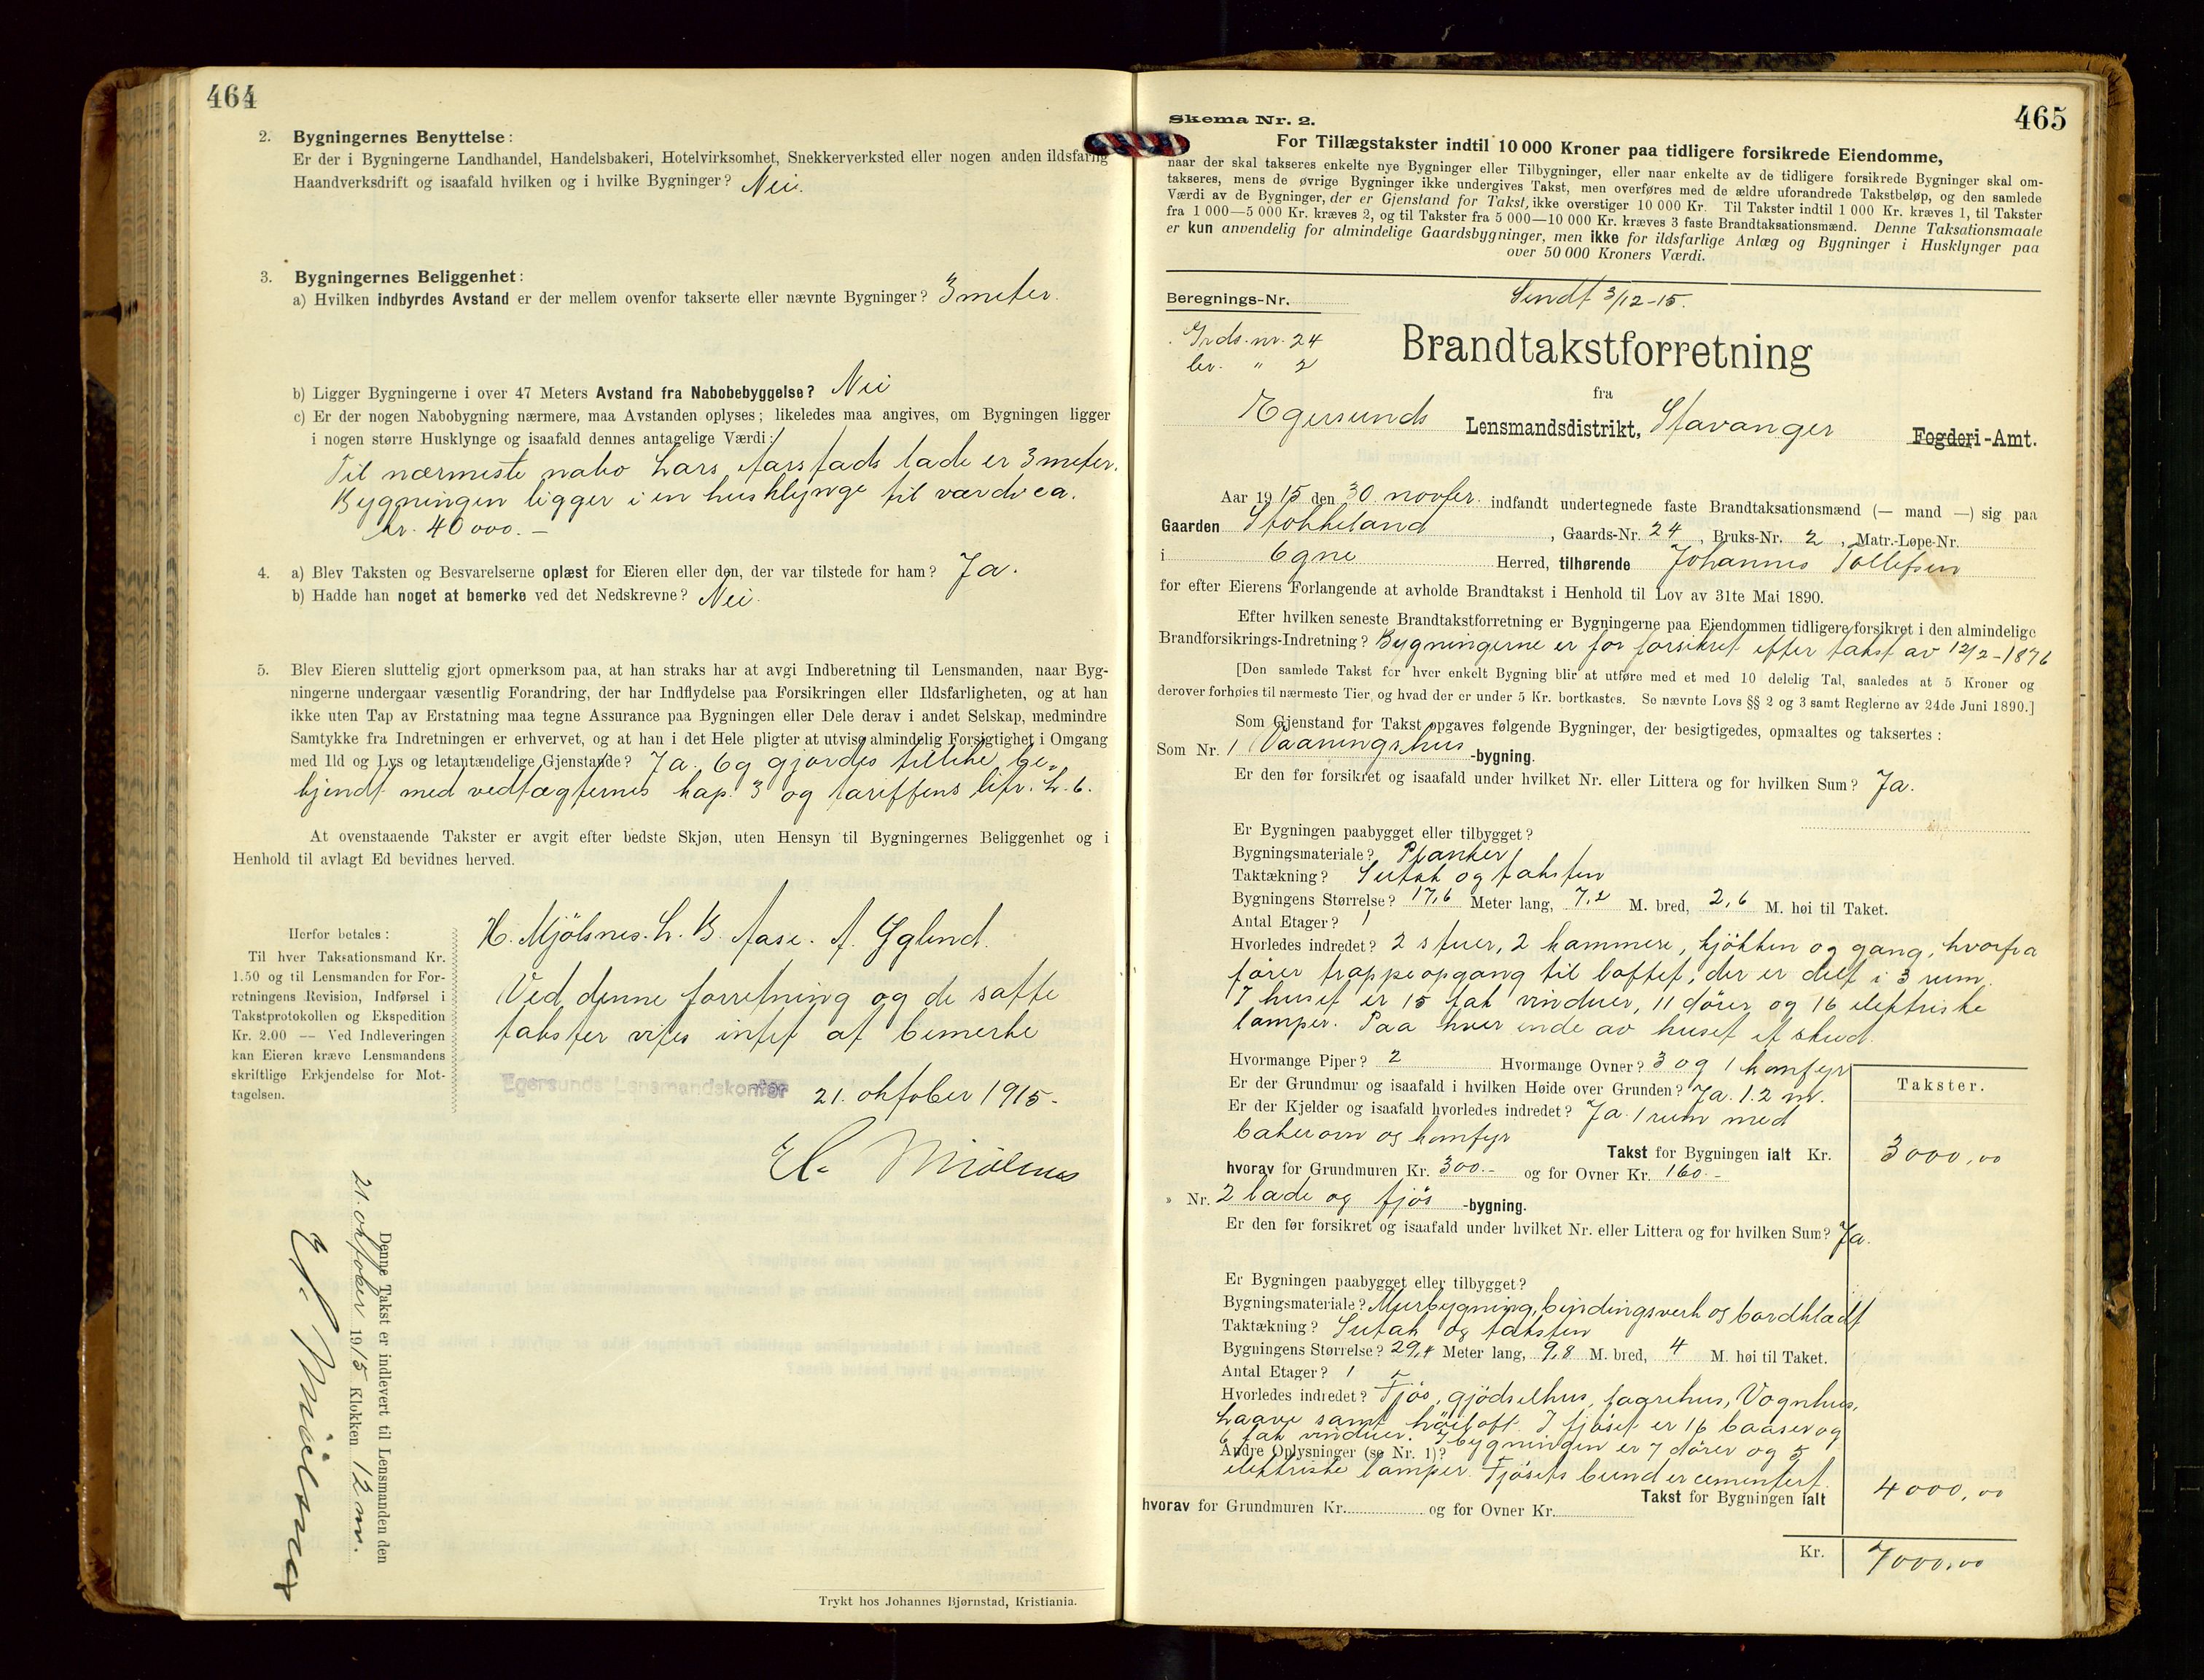 464
2. Bygningernes Benyttelse:
Er der i Bygningerne Landhandel, Handelsbakeri, Hotelvirksomhet, Snekkerverksted eller nogen anden ildsfarlig
Haandverksdrift og isaafald hvilken og i hvilke Bygninger? Nei.
3. Bygningernes Beliggenhet:
a) Hvilken indbyrdes Avstand er der mellem ovenfor takserte eller nævnte Bygninger? 3 meter.
b) Ligger Bygningerne i over 47 Meters Avstand fra Nabobebyggelse? Nei
c) Er der nogen Nabobygning nærmere, maa Avstanden oplyses; likeledes maa angives, om Bygningen ligger
i nogen større Husklynge og isaafald dennes antagelige Værdi:
Til nærmeste nabo Lars Aarstads lade er 3 meter.
Bygningen ligger i en husklynge til værdi ca.
kr. 40000.—
4. a) Blev Taksten og Besvarelserne oplæst for Eieren eller den, der var tilstede for ham? Ja.
b) Hadde han noget at bemerke ved det Nedskrevne? Nei.
5. Blev Eieren sluttelig gjort opmerksom paa, at han straks har at avgi Indberetning til Lensmanden, naar Byg-
ningerne undergaar væsentlig Forandring, der har Indflydelse paa Forsikringen eller Ildsfarligheten, og at han
ikke uten Tap av Erstatning maa tegne Assurance paa Bygningen eller Dele derav i andet Selskap, medmindre
Samtykke fra Indretningen er erhvervet, og at han i det Hele pligter at utvise almindelig Forsigtighet i Omgang
med Ild og Lys og letantændelige Gjenstande? Ja. Og gjordes tillike be-
kjendt med vedtægternes kap. 3 og tariffens litr. L. 6.
At ovenstaaende Takster er avgit efter bedste Skjøn, uten Hensyn til Bygningernes Beliggenhet og i
Henhold til avlagt Ed bevidnes herved.
H. Mjölsnes. L. B. Aase. A. Eglend.
Herfor betales:
Til hver Taksationsmand Kr.
1.50 og til Lensmanden for For-
retningens Revision, Indførsel i
Takstprotokollen og Ekspedition
Kr. 2.00 — Ved Indleveringen
kan Eieren kræve Lensmandens
skriftlige Erkjendelse for Mot-
tagelsen.
Ved denne forretning og de satte
takster vites intet at bemerke
Egersunds Lensmandskontor 21. oktober 1915.
Denne Takst er indlevert til Lensmanden den
21. oktober 1915 Klokken 12 m.
Trykt hos Johannes Bjørnstad, Kristiania.
465
Skema Nr. 2.
For Tillægstakster indtil 10 000 Kroner paa tidligere forsikrede Eiendomme,
naar der skal takseres enkelte nye Bygninger eller Tilbygninger, eller naar enkelte av de tidligere forsikrede Bygninger skal om-
takseres, mens de øvrige Bygninger ikke undergives Takst, men overføres med de ældre uforandrede Takstbeløp, og den samlede
Værdi av de Bygninger, der er Gjenstand for Takst, ikke overstiger 10 000 Kr. Til Takster indtil 1 000 Kr. kræves 1, til Takster
fra 1 000—5 000 Kr. kræves 2, og til Takster fra 5 000—10 000 Kr. kræves 3 faste Brandtaksationsmænd. Denne Taksationsmaate
er kun anvendelig for almindelige Gaardsbygninger, men ikke for ildsfarlige Anlæg og Bygninger i Husklynger paa
over 50 000 Kroners Værdi.
Beregnings-Nr.
Sendt 3/12-15.
Grds. nr. 24
br. " 2
Brandtakstforretning
fra
Egersunds Lensmandsdistrikt, Stavanger Fogderi-Amt.
Aar 1915 den 30. novbr. indfandt undertegnede faste Brandtaksationsmænd (— mand —) sig paa
Gaarden Stokkeland, Gaards-Nr. 24, Bruks-Nr. 2, Matr.-Løpe-Nr.
i Ogne Herred, tilhørende Johannes Tollefsen
for efter Eierens Forlangende at avholde Brandtakst i Henhold til Lov av 31te Mai 1890.
Efter hvilken seneste Brandtakstforretning er Bygningerne paa Eiendommen tidligere forsikret i den almindelige
Brandforsikrings-Indretning? Bygningerne er før forsikret efter takst av 12/2-1876
[Den samlede Takst for hver enkelt Bygning blir at utføre med et med 10 delelig Tal, saaledes at 5 Kroner og
derover forhøies til nærmeste Tier, og hvad der er under 5 Kr. bortkastes. Se nævnte Lovs §§ 2 og 3 samt Reglerne av 24de Juni 1890.]
Som Gjenstand for Takst opgaves følgende Bygninger, der besigtigedes, opmaaltes og taksertes:
Som Nr. 1 Vaaningshus -bygning.
Er den før forsikret og isaafald under hvilket Nr. eller Littera og for hvilken Sum? Ja.
Er Bygningen paabygget eller tilbygget?
Bygningsmateriale? Planker
Taktækning? Sutak og taksten
Bygningens Størrelse? 17,6 Meter lang, 7,2 M. bred, 2,6 M. høi til Taket.
Antal Etager? 1
Hvorledes indredet? 2 stuer, 2 kammere, kjökken og gang, hvorfra
fører trappeopgang til loftet, der er delt i 3 rum.
I huset er 15 fak vinduer, 11 dører og 16 elektriske
lamper. Paa hver ende av huset et skud.
Hvormange Piper? 2 Hvormange Ovner? 3 og 1 komfyr
Er der Grundmur og isaafald i hvilken Høide over Grunden? Ja. 1.2 m.
Er der Kjelder og isaafald hvorledes indredet? Ja 1 rum med
bakerovn og komfyr
Takster.
Takst for Bygningen ialt Kr. 3000,00
hvorav for Grundmuren Kr. 300.- og for Ovner Kr. 160.-
» Nr. 2 lade og fjös -bygning.
Er den før forsikret og isaafald under hvilket Nr. eller Littera og for hvilken Sum? Ja.
Er Bygningen paabygget eller tilbygget?
Bygningsmateriale? Murbygning, bindingsverk og bordklædt
Taktækning? Sutak og taksten
Bygningens Størrelse? 29,4 Meter lang, 9,8 M. bred, 4 M. høi til Taket.
Antal Etager? 1
Hvorledes indredet? Fjös, gjödselhus, faarehus, Vognhus,
Laave samt höiloft. I fjöset er 16 baaser og
6 fak vinduer. I bygningen er 7 dører og 5
Andre Oplysninger (se Nr. 1)?
elektriske lamper. Fjösets bund er cementert.
Takst for Bygningen ialt 4000,00
hvorav for Grundmuren Kr. og for Ovner Kr.
Kr. 7000,00